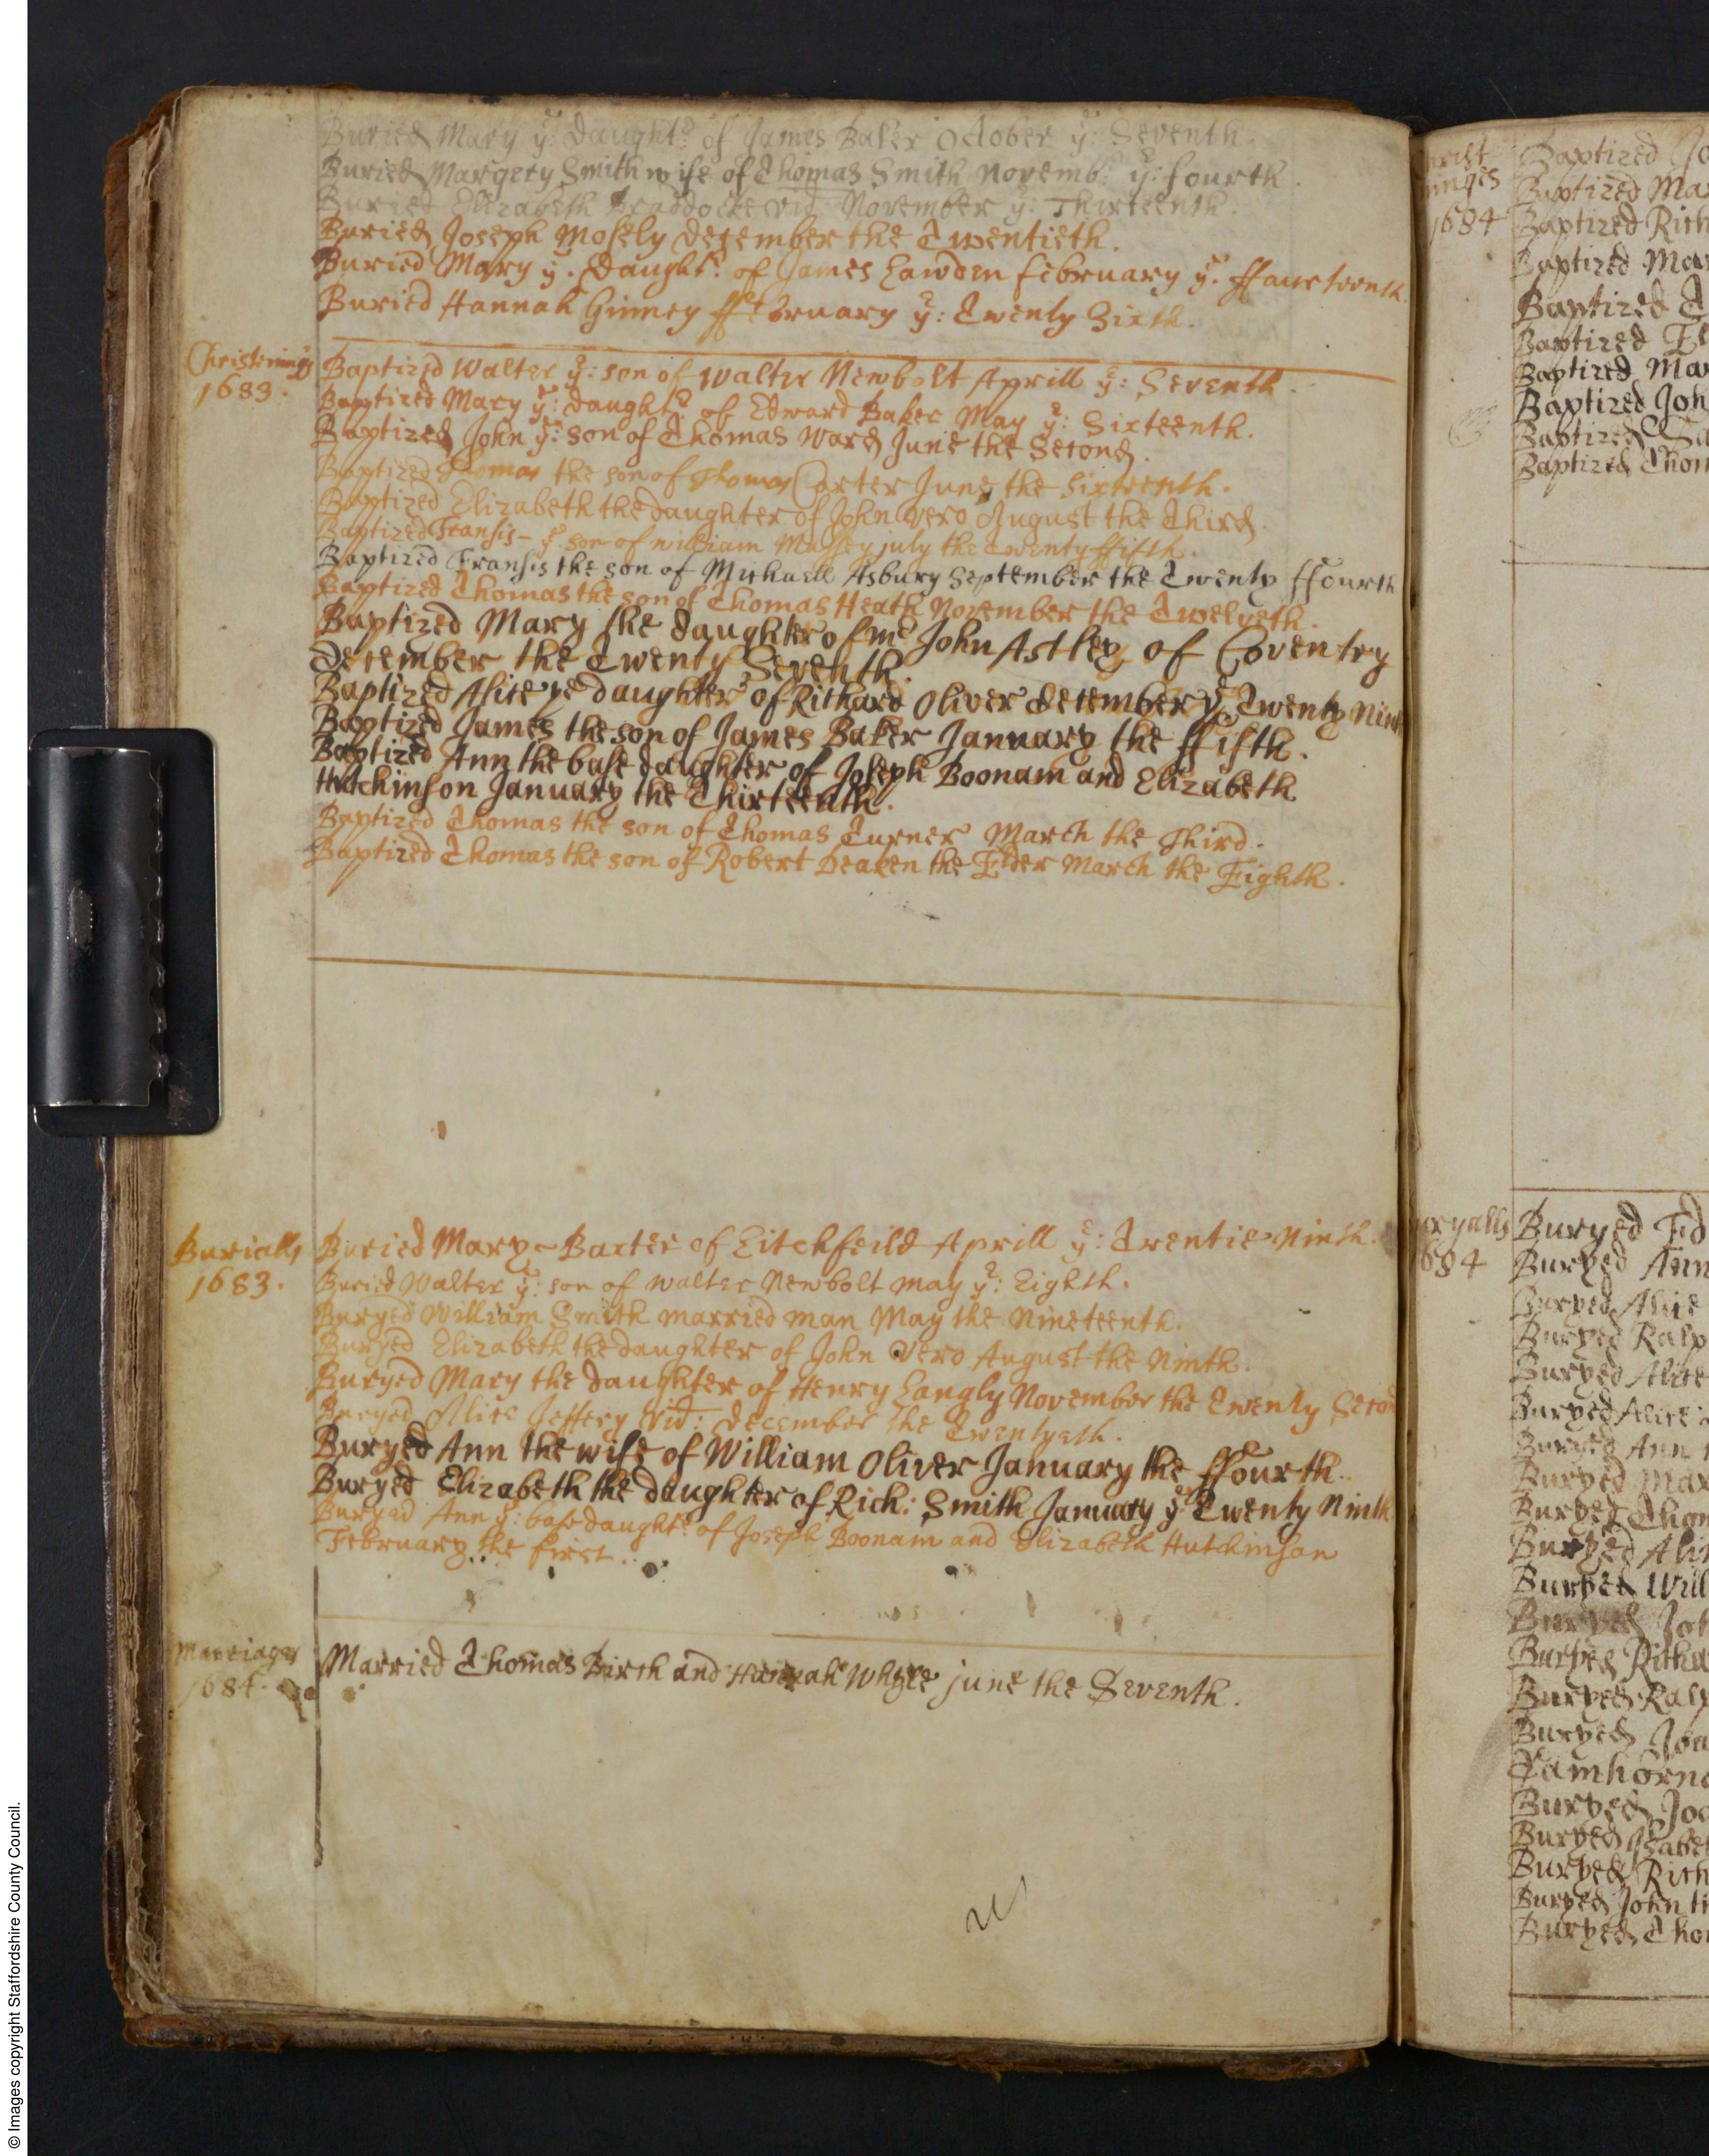 Buried Mary yᵉ: Daughtʳ of James Baker October yᵉ: Seventh.
Buried Margery Smith wife of Thomas Smith Novembʳ yᵉ: fourth.
Buried Elizabeth Braddocke vid: November yᵉ: Thirteenth.
Buried Joseph Mosely December the Twentieth.
Buried Mary yᵉ. Daughtʳ: of James Lawden february yᵉ. ffourteenth.
Buried Hannah Ginney ffebruary yᵉ: Twenty Sixth.
Christenings
1683.
Baptized Walter yᵉ: son of Walter Newbolt Aprill yᵉ: Seventh.
Baptized Mary yᵉ: daughtʳ of Edward Baker May yᵉ: Sixteenth.
Baptized John yᵉ: son of Thomas Ward June the Second.
Baptized Thomas the son of Thomas Carter June the Sixteenth.
Baptized Elizabeth the daughter of John Vero August the Third.
Baptized Fransis - yᵉ son of william Massey july the twenty ffifth.
Baptized Fransis the son of Michaell Asbury September the Twenty ffourth
Baptized Thomas the son of Thomas Heath November the Twelveth.
Baptized Mary the daughter of mʳ John Astley of Coventry
December the Twenty Seventh.
Baptized Alice ye daughter of Richard Oliver December yᵉ Twenty Ninth
Baptized James the son of James Baker January the ffifth.
Baptized Ann the base daughter of Joseph Boonam and Elizabeth
Hutchinson January the Thirteenth.
Baptized Thomas the son of Thomas Turner March the Third.
Baptized Thomas the son of Robert Deaken the Elder March the Eighth.
Burialls
1683.
Buried Mary Baxter of Litchfeild Aprill yᵉ: Twentie Ninth.
Buried Walter yᵉ: son of Walter Newbolt may yᵉ: Eighth.
Buryed William Smith married man May the Nineteenth.
Buryed Elizabeth the daughter of John Vero August the Ninth.
Buryed Mary the daughter of Henry Langly November the Twenty Secon
Buryed Alice Jeffery Vid: December the Twentyeth.
Buryed Ann the wife of William Oliver January the ffourth.
Buryed Elizabeth the daughter of Rich: Smith January yᵉ Twenty Ninth
Buryed Ann yᵉ: base daughtʳ of Joseph Boonam and Elizabeth Hutchinson
February the first.
Marriages
1684.
Married Thomas Birch and Hannah june the Seventh.
1684
Baptized Jo
Baptized Ma
Baptized Rich
Baptized Mar
Baptized T
Baptized El
Baptized Mar
Baptized Joh
Baptized Sa
Baptized Thom
uryalls
684
Buryed Ed
Buryed Ann
Buryed Alice
Buryed Ralp
Buryed Alice
Buryed Alice
Buryed Ann
Buryed Mar
Buryed Thom
Buryed Ali
Buryed Will
Buryed Joh
Buryed Richa
Buryed Ralp
Buryed Joa
Tamhorne
Buryed Joa
Buryed Isabel
Buryed Rich
Buryed John
Buryed Tho
© Images copyright Staffordshire County Council.